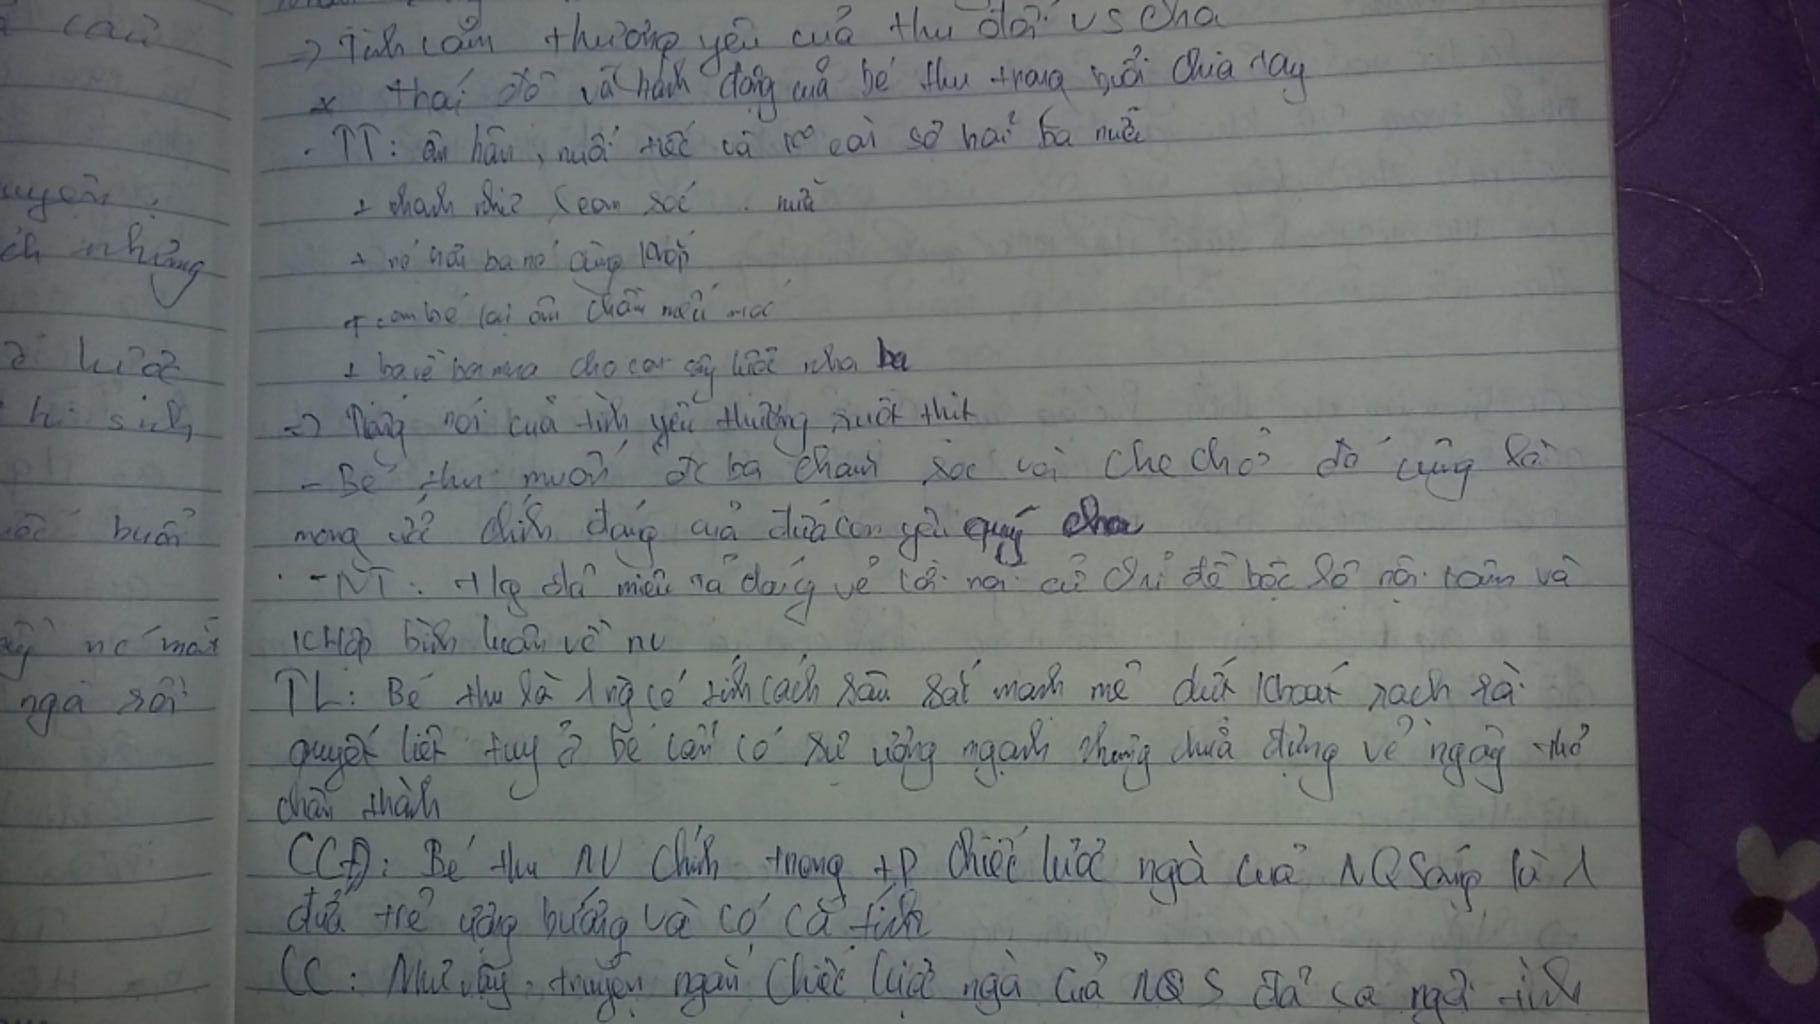 cầu
uyên,
ch nhưng
lược
hi sinh
buổi
nó mới
ngà rồi
=> Tình cảm thương yêu của thu đối vs cha
* thái độ và hành động của bé thu trong buổi chia tay
- TT: ân hận, nuối tiếc và ko còn sợ hai ba nữa
+ nó hôn ba nó cùng khắp
+ con bé lại ôm chầm
+ ba về ba mua cho con cây lược nha ba
=> Tiếng nói của tình yêu thương ruột thịt
- Bé thu muốn đc ba chăm sóc và che chở đó cũng là
mong ước chính đáng của đứa con yêu quý cha
- NT: + tg đã miêu tả dáng vẻ lời nói cử chỉ để bộc lộ nội tâm và
KHợp bình luận về nv
TL: Bé thu là 1 ng có tính cách sâu sắc mạnh mẽ dứt khoát rạch ròi
quyết liệt tuy ở bé có sự ương ngạnh nhưng chứa đựng vẻ ngây thơ
chân thành
CCĐ: Bé thu NV chính trong tP chiếc lược ngà của NQSáng là 1
đứa trẻ ương bướng và có cá tính
CC: Như vậy, truyện ngắn Chiếc lược ngà của NQS đã ca ngợi tình